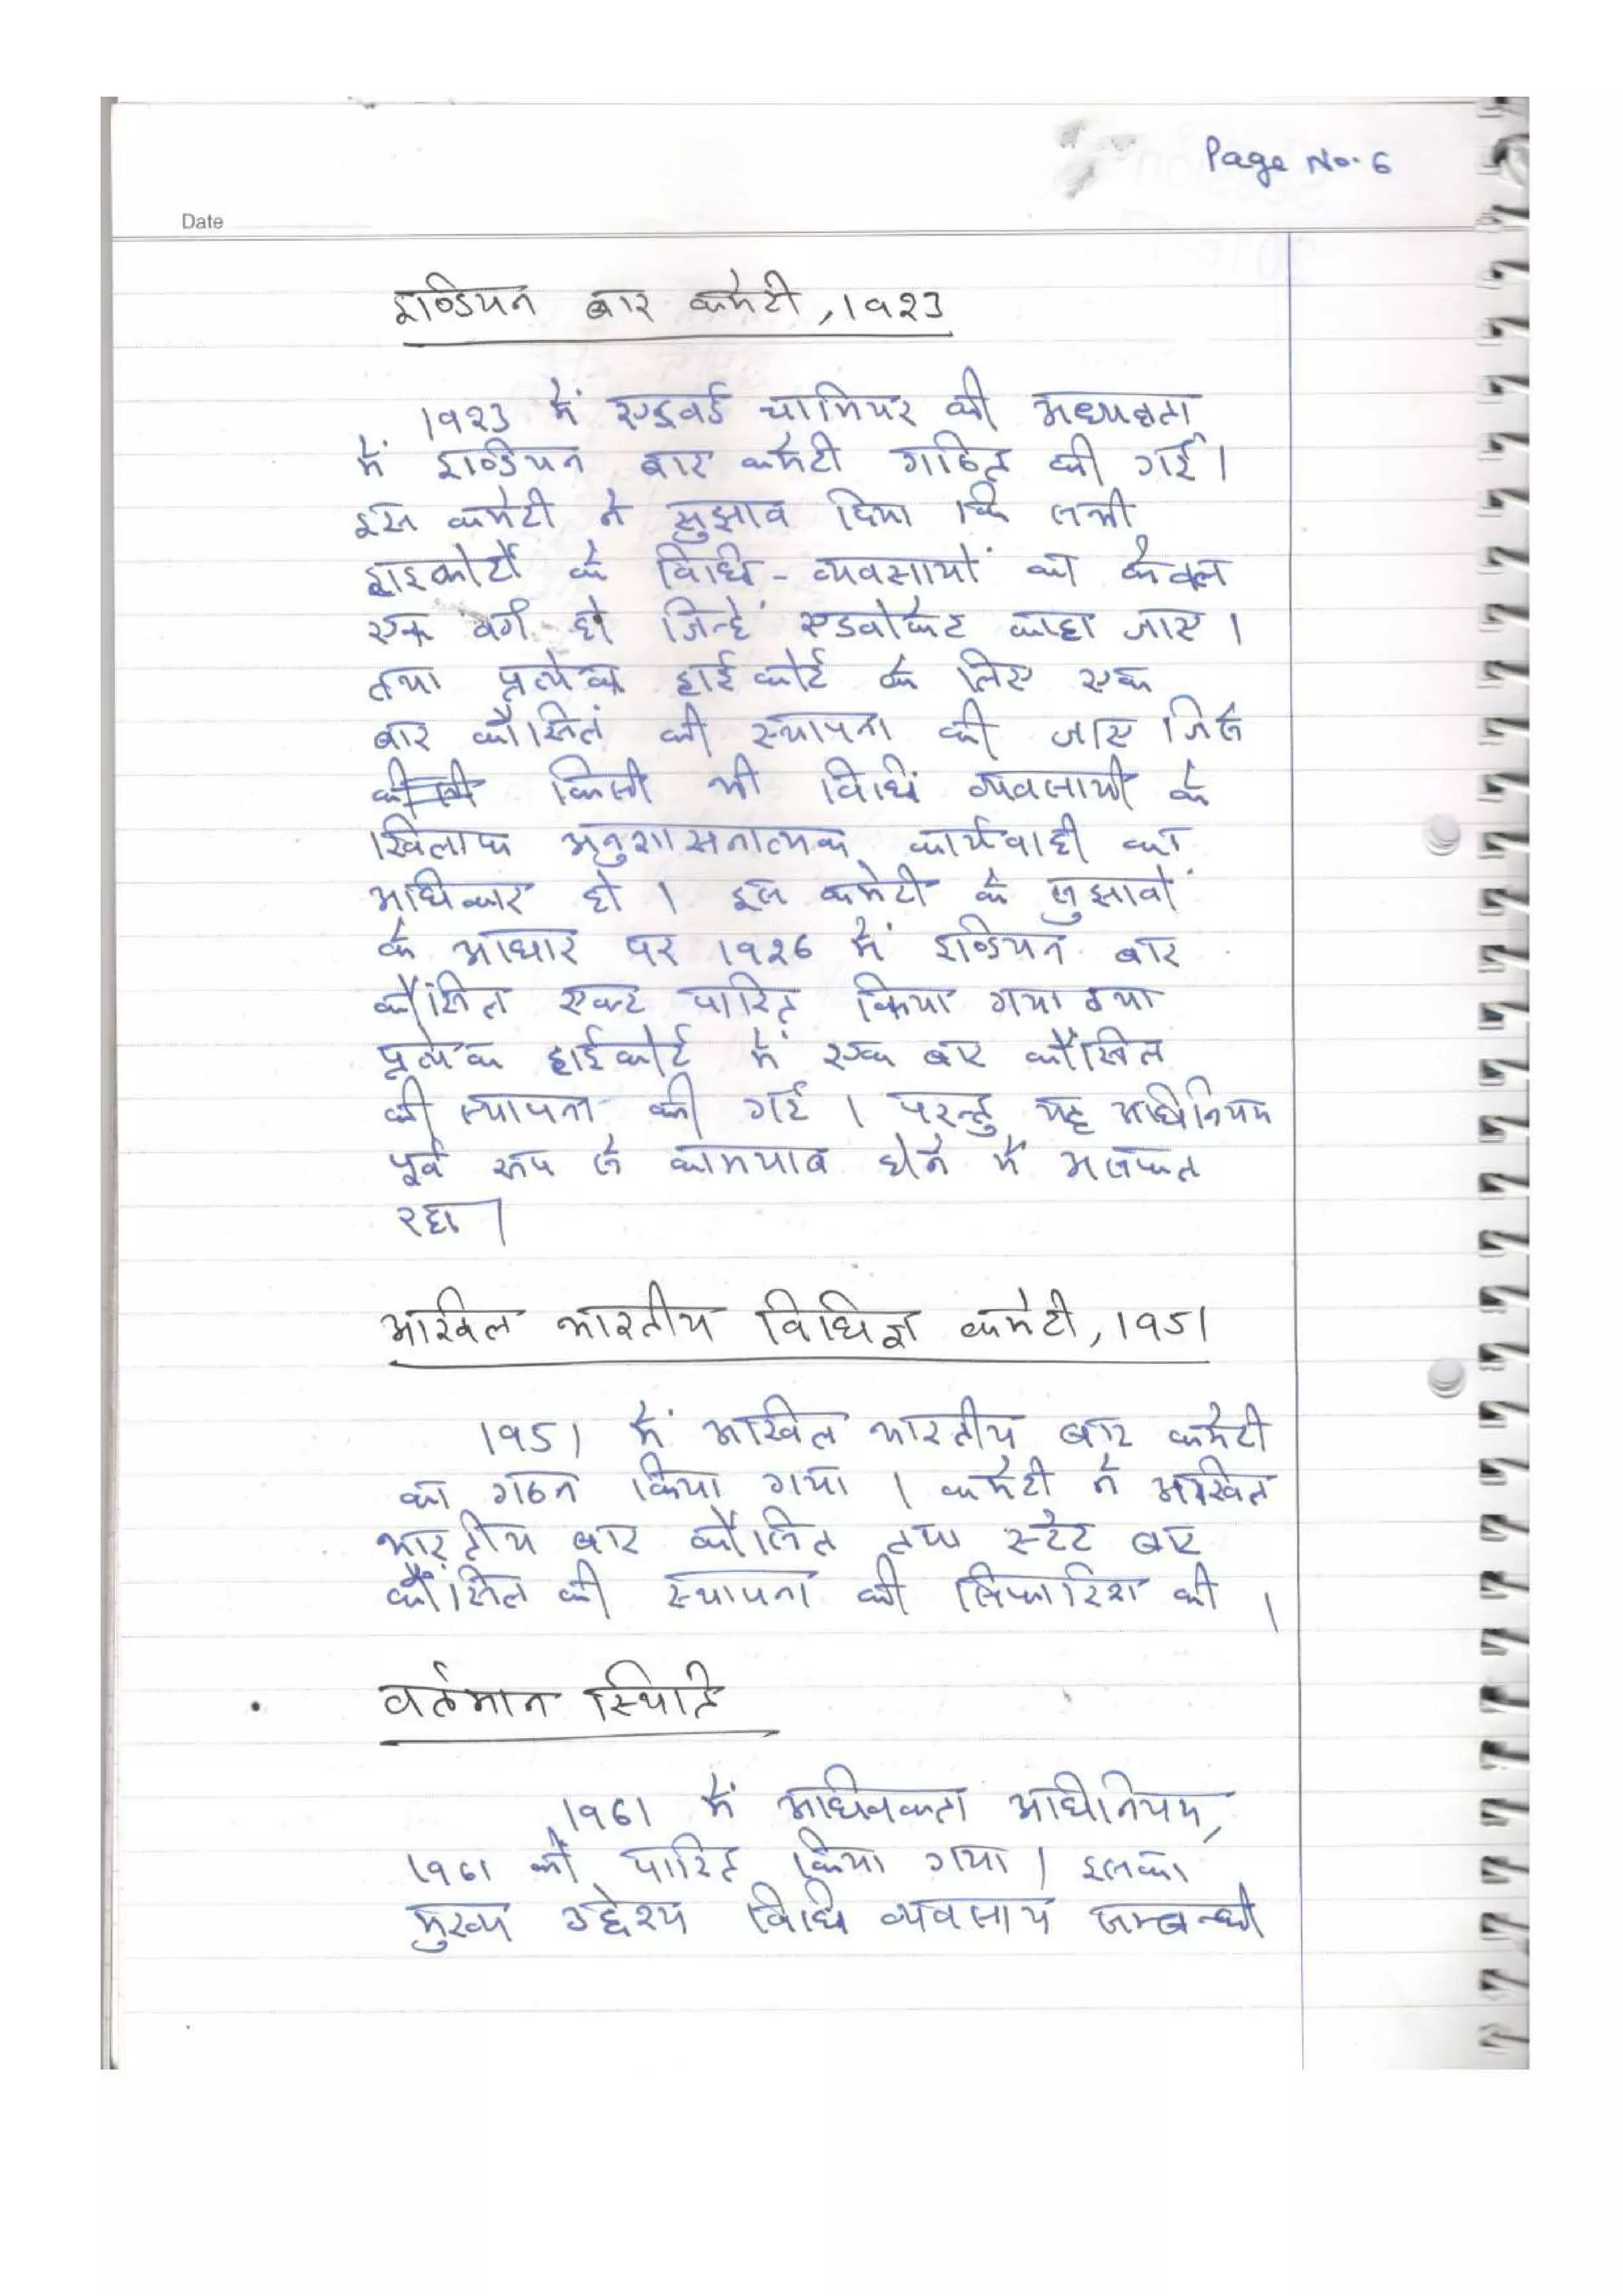 Page No. 6
Date
इण्डियन बार कमेटी, 1923
1923 में एडवर्ड चामियर की अध्यक्षता
में इण्डियन बार कमेटी गठित की गई।
इस कमेटी ने सुझाव दिया कि सभी
हाइकोर्टों के विधि - व्यवसायों का केवल
एक वर्ग हो जिन्हें एडवोकेट कहा जाए।
तथा प्रत्येक हाईकोर्ट के लिए एक
बार कौंसिल की स्थापना की जाए जिसे
किसी भी विधि व्यवसायी के
खिलाफ अनुशासनात्मक कार्यवाही का
अधिकार हो। इस कमेटी के सुझावों
के आधार पर 1926 में इण्डियन बार
कौंसिल एक्ट पारित किया गया तथा
प्रत्येक हाईकोर्ट में एक बार कौंसिल
की स्थापना की गई। परन्तु यह अधिनियम
पूर्व रूप से कामयाब होने में असफल
रहा।
अखिल भारतीय विधिज्ञ कमेटी, 1951
1951 में अखिल भारतीय बार कमेटी
का गठन किया गया। कमेटी ने अखिल
भारतीय बार कौंसिल तथा स्टेट बार
कौंसिल की स्थापना की सिफारिश की।
वर्तमान स्थिति
1961 में अधिवक्ता अधिनियम,
1961 को पारित किया गया। इसका
मुख्य उद्देश्य विधि व्यवसाय सम्बन्धी